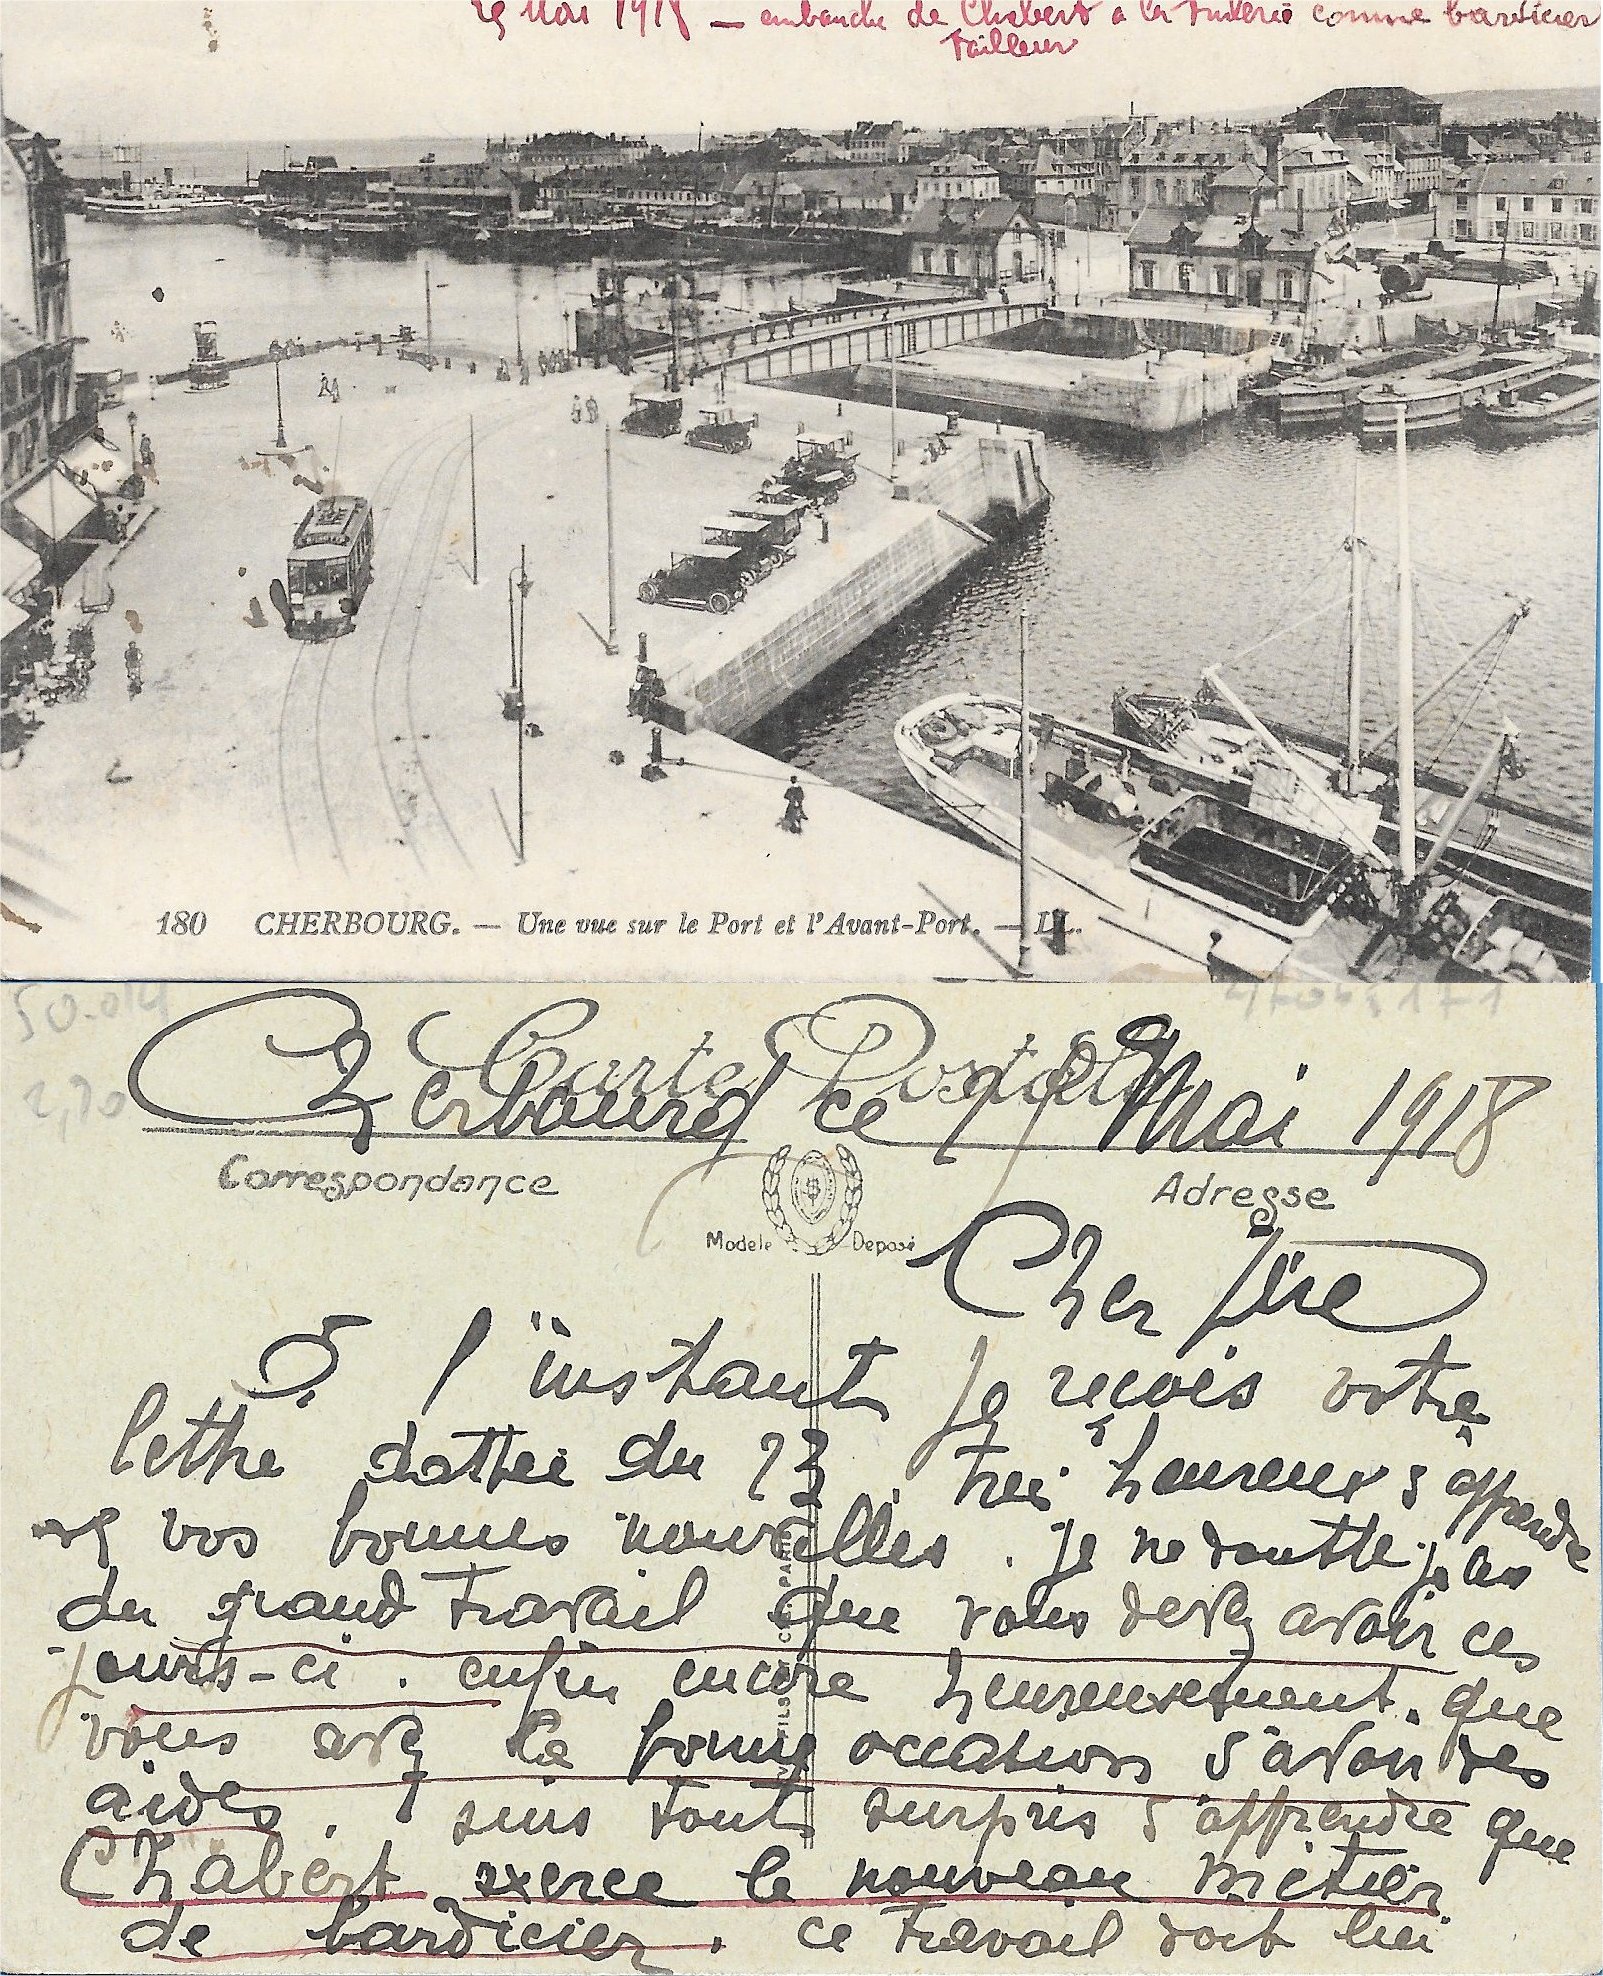 29 Mai 1918 — embauche de Chabert a la tuilerie comme bardicier
tailleur
180 CHERBOURG. — Une vue sur le Port et l'Avant-Port. — LL.
50.014
2,70
Carte Postale
Cherbourg ce 29 Mai 1918
Correspondance
Adresse
Modele Deposé
Cher Père
A l'instant je reçois votre
lettre dattée du 23. très heureux d'apprendre
vos bonnes nouvelles. je ne doutte pas
du grand travail que vous devez avoir ces
jours-ci. enfin encore heureusement que
vous avez la bonne occation d'avoir des
aides. suis tout surpris d'apprendre que
Chabert exerce le nouveau métier
de bardicier. ce travail doit lui